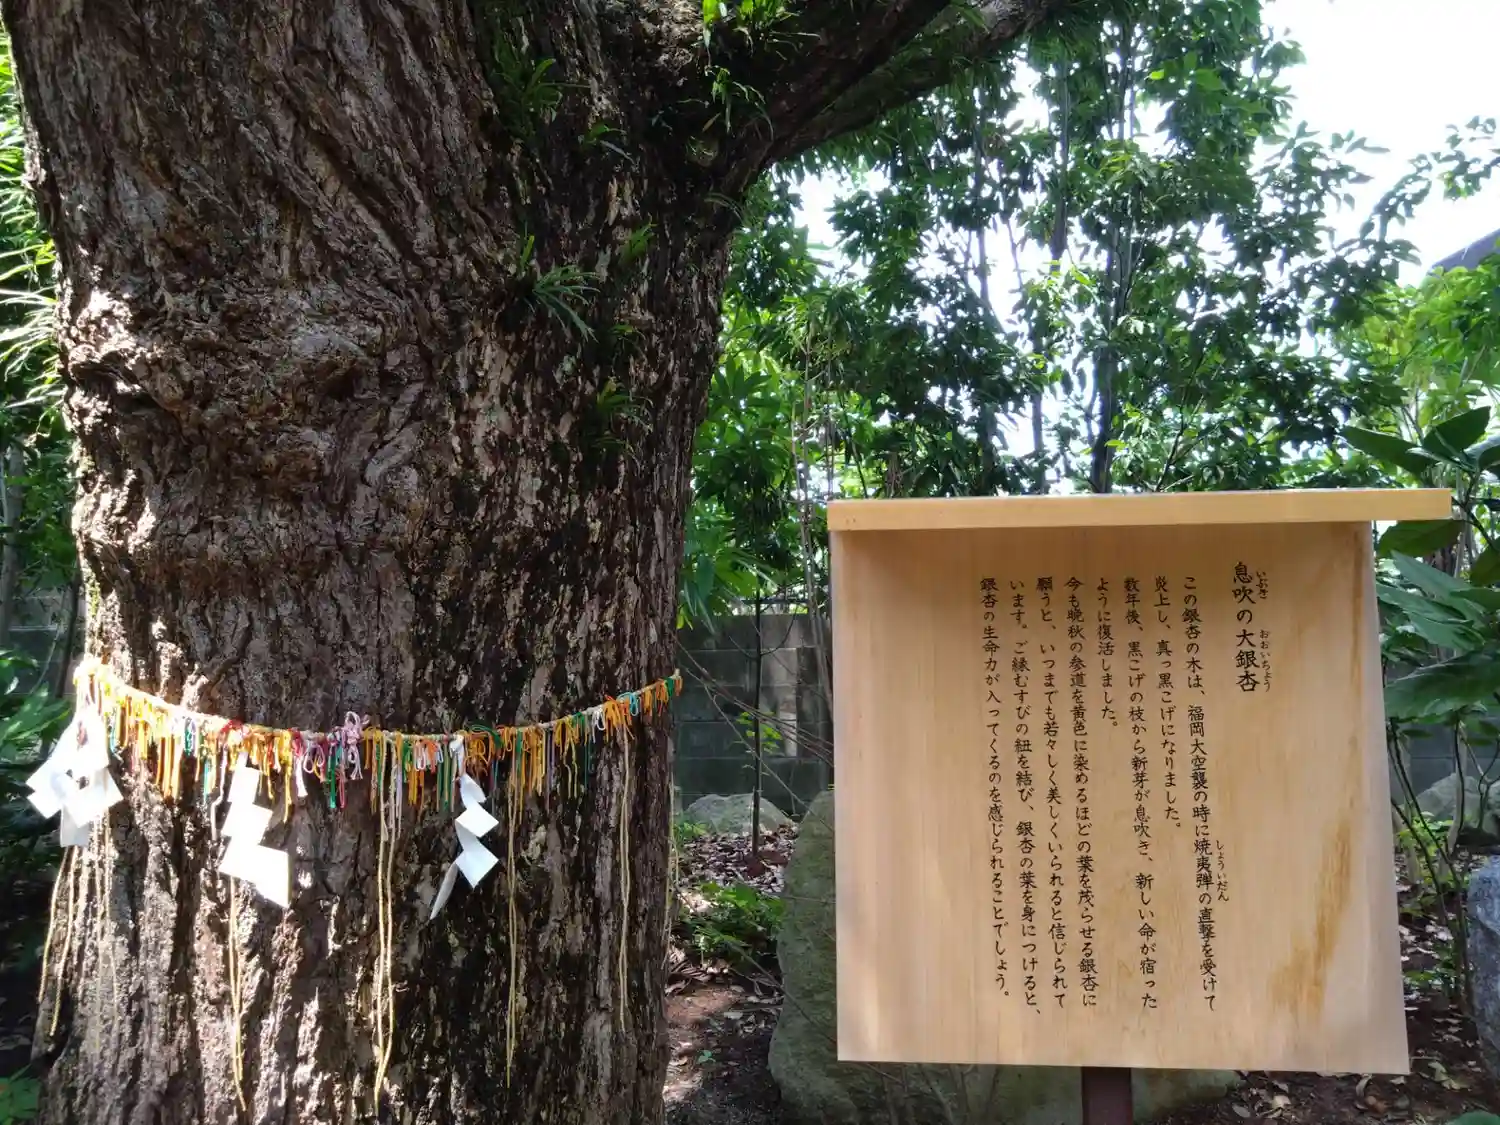 息吹の大銀杏
いぶき
おおいちょう
この銀杏の木は、福岡大空襲の時に焼夷弾の直撃を受けて
しょういだん
炎上し、真っ黒こげになりました。
数年後、黒こげの枝から新芽が息吹き、新しい命が宿った
ように復活しました。
今も晩秋の参道を黄色に染めるほどの葉を茂らせる銀杏に
願うと、いつまでも若々しく美しくいられると信じられて
います。ご縁むすびの紐を結び、銀杏の葉を身につけると、
銀杏の生命力が入ってくるのを感じられることでしょう。